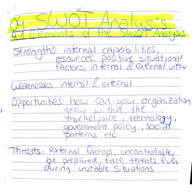 a) SWOT Analysis
4 elements of the SWOT Analysis
Strengths: internal capabilities,
resources, positive situational
factors, internal & external view
Weaknesses internal & external
Opportunites how can your organization
grow within the
marketplace, technology,
government policy, social
patterns etc
Threats: external factors, uncontrollable,
be prepared, face threats even
during unstable situations